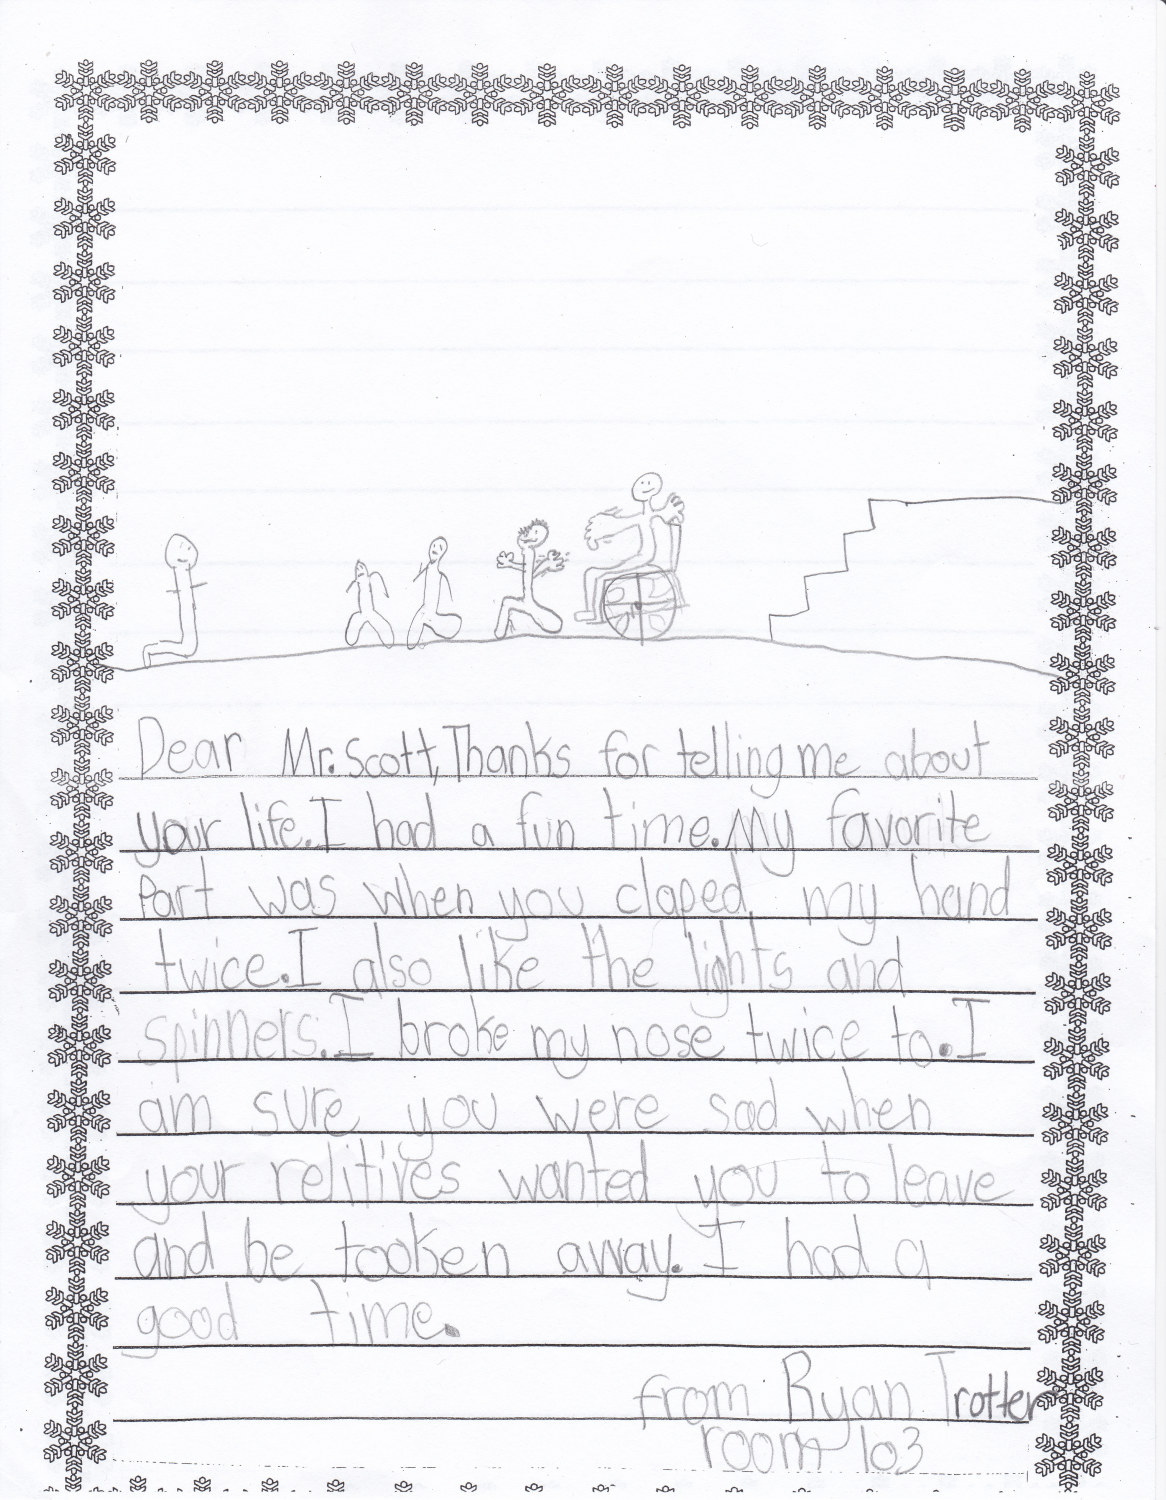 Dear Mr. Scott, Thanks for telling me about
your life. I had a fun time. My favorite
Part was when you claped my hand
twice. I also like the lights and
spinners. I broke my nose twice to. I
am sure you were sad when
your relitives wanted you to leave
and be tooken away. I had a
good time.
from Ryan Trotter
room 103